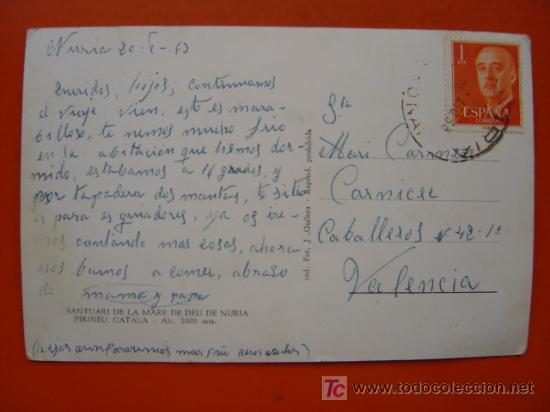 Nuria 20-I-63
Queridos, hijos; continuamos
el viaje vien, este es mara-
billoso, te nemos mucho frio
en la abitación que hemos dor-
mido, estabamos a 16 grados, y
por tapadera dos mantas,
es para esquiadores, ya os ire-
mos contando mas cosas, ahora
nos bamos a comer, abrazo
de mama y papa
SANTUARI DE LA MARE DE DEU DE NURIA
PIRINEU CATALA - Alt. 2000 mts.
(hijos aun pasaremos mas frio
ind. Fot. J. Reprod. prohibida
1
PTA
ESPAÑA
CORREOS
Sta
Mari Carmen
Carnicer
Caballeros nº 42-1º
Valencia
TC todocoleccion
www.todocoleccion.net